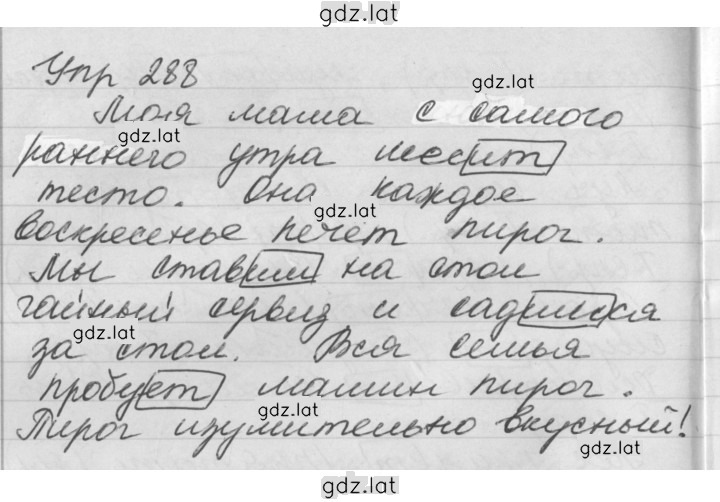 gdz.lat
Упр 288
gdz.lat
Моя мама с самого
gdz.lat
раннего утра месит
тесто. Она каждое
gdz.lat
воскресенье печёт пирог.
Мы ставим на стол
чайный сервиз и садимся
gdz.lat
за стол. Вся семья
пробует мамин пирог.
gdz.lat
Пирог изумительно вкусный!
gdz.lat
gdz.lat